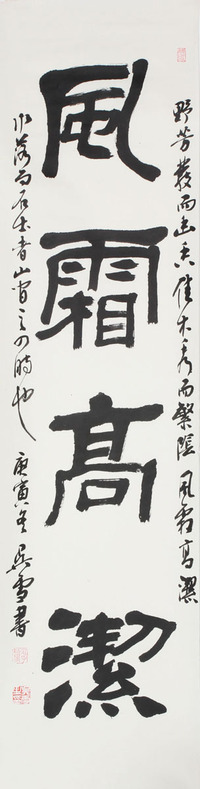 風霜高潔
野芳發而幽香佳木秀而繁陰風霜高潔
水落而石出者山間之四時也庚寅冬吳雪書